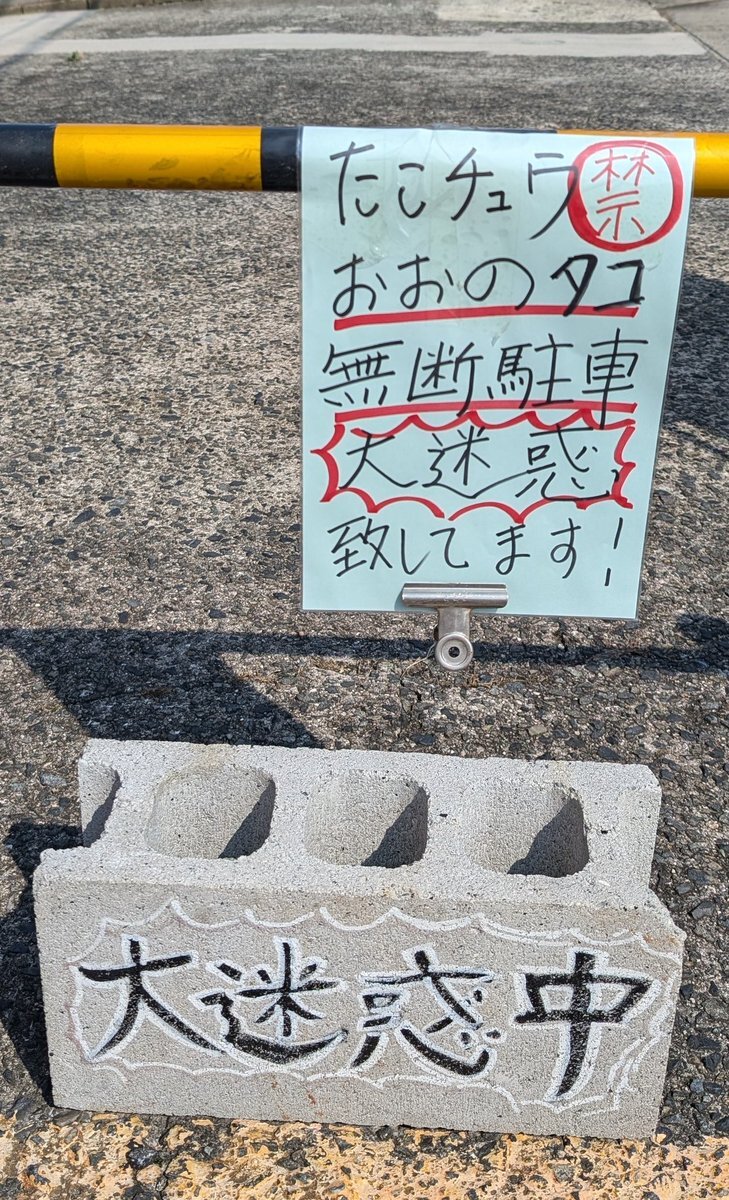 たこチュウ禁
おおのタコ
無断駐車
大迷惑
致してます!
大迷惑中